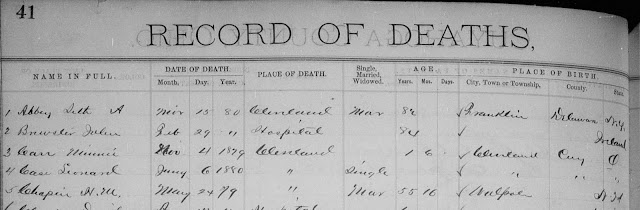 41
RECORD OF DEATHS,
NAME IN FULL. DATE OF DEATH. PLACE OF DEATH. Single, Married, Widowed. AGE. PLACE OF BIRTH.
Month. Day. Year. Years. Mos. Days. City, Town or Township, County. State.
1 Abbey Seth A Nov 15 80 Cleveland Mar 82 Franklin Delaware N.Y.
2 Brewster Julia Feb 29 " Hospital 84 Ireland
3 Carr Minnie Nov 4 1879 Cleveland 1 6 Cleveland Cuy O
4 Case Leonard Jany 6 1880 " Single " " "
5 Chapin H.M. May 24 79 " Mar 55 16 Walpole N.H